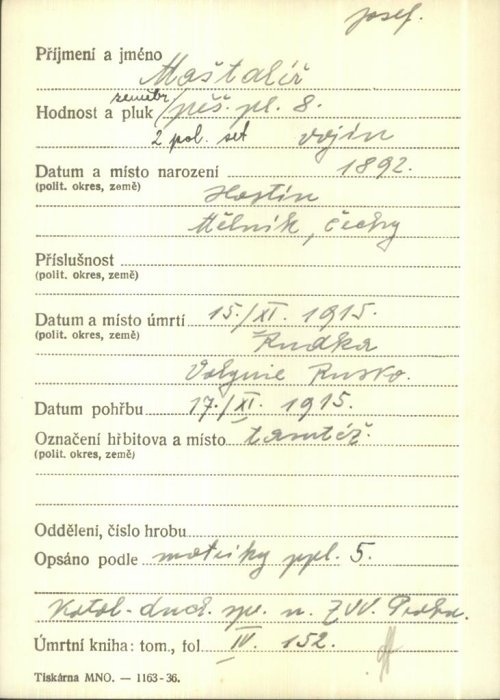 Josef.
Příjmení a jméno Maštalíř
zeměbr.
Hodnost a pluk pěš. pl. 8.
2 pol. set vojín
Datum a místo narození 1892.
(polit. okres, země) Hostín
Mělník, Čechy
Příslušnost
(polit. okres, země)
Datum a místo úmrtí 15./XI. 1915.
(polit. okres, země) Rudka
Volynie Rusko.
Datum pohřbu 17./XI. 1915.
Označení hřbitova a místo tamtéž.
(polit. okres, země)
Oddělení, číslo hrobu
Opsáno podle matriky ppl. 5.
Katol. duch. spr. n. ZVV. Praha.
Úmrtní kniha: tom., fol IV. 152.
Tiskárna MNO. — 1163-36.